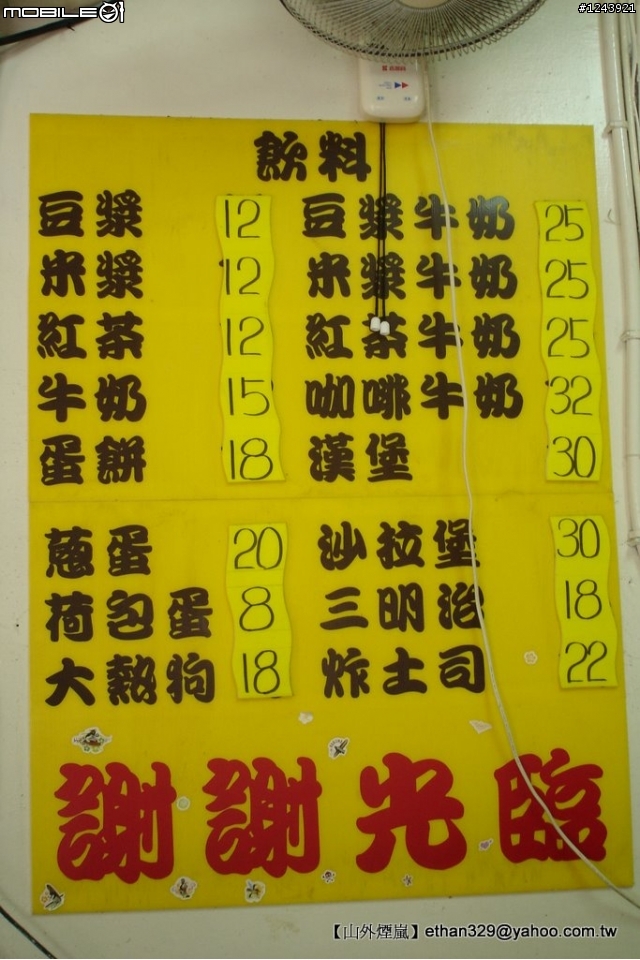 MOBILE01
#1243921
飲料
豆漿 12 豆漿牛奶 25
米漿 12 米漿牛奶 25
紅茶 12 紅茶牛奶 25
牛奶 15 咖啡牛奶 32
蛋餅 18 漢堡 30
蔥蛋 20 沙拉堡 30
荷包蛋 8 三明治 18
大熱狗 18 炸土司 22
謝謝光臨
【山外煙嵐】ethan329@yahoo.com.tw